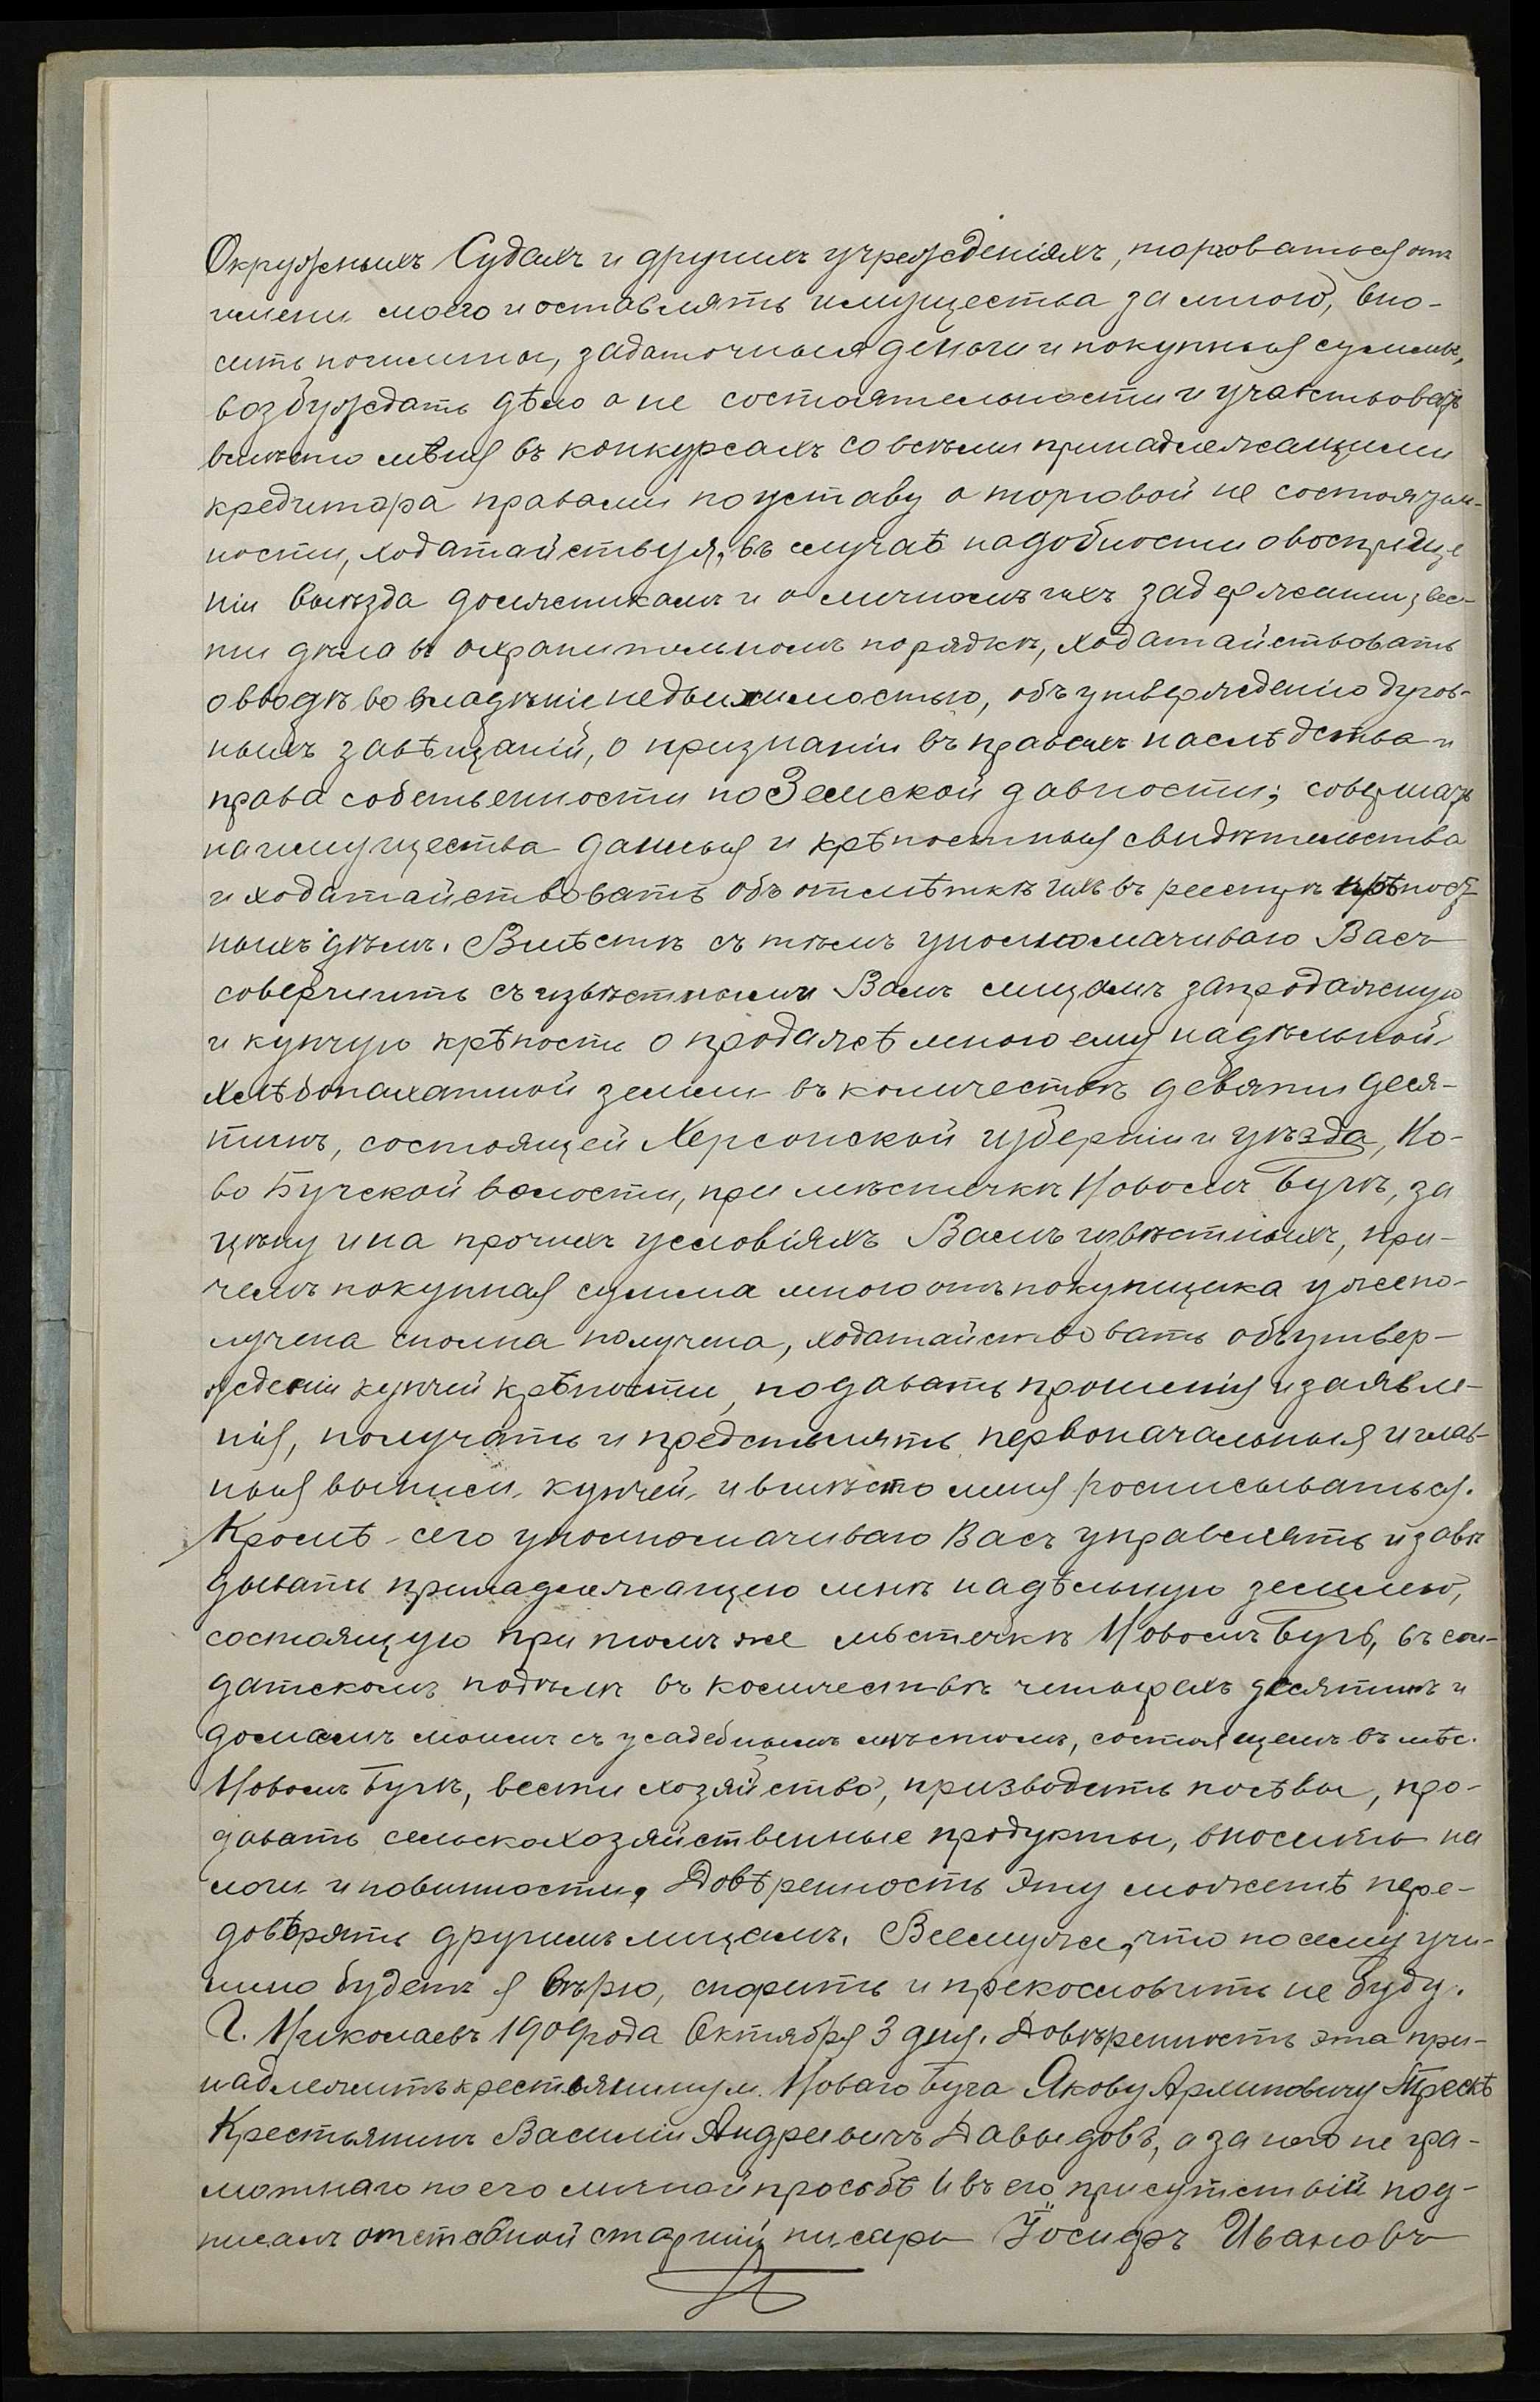 Окружныхъ Судахъ и другихъ учрежденіяхъ, торговаться отъ
имени моего и оставлять имущества за мною, вно-
сить пошлины, задаточныя деньги и покупныя суммы,
возбуждать дѣло о не состоятельности и участвовать
вмѣсто мѣня въ конкурсахъ со всѣми принадлежащими
кредитора правами по уставу о торговой не состоятель-
ности, ходатайствуя, въ случаѣ надобности о воспреще
ніи выѣзда должникамъ и о личномъ ихъ задержаніи, вес-
ти дѣла въ охранительномъ порядкѣ, ходатайствовать
о вводѣ во владѣніе недвижимостью, объ утвержденію духов-
ныхъ завѣщаній, о признаніи въ правахъ наслѣдства и
права собственности по Земской давности; совершать
на имущества данныя и крѣпостныя свидѣтельства
и ходатайствовать объ отмѣткѣ ихъ въ реестрѣ крѣпост
ныхъ дѣлъ. Вмѣстѣ съ тѣмъ уполномачиваю Васъ
совершить съ извѣстнымъ Вамъ лицамъ запродажную
и купчую крѣпости о продажѣ мною ему надѣльной
хлѣбопахатной земли въ количествѣ девяти деся-
тинъ, состоящей Херсонской губерніи и уѣзда, Но-
во Бугской волости, при мѣстечкѣ Новомъ Бугѣ, за
цѣну и на прочихъ условіяхъ Вамъ извѣстныхъ, при-
чемъ покупная сумма мною отъ покупщика уже по-
лучена сполна получена, ходатайствовать объ утвер-
жденіи купчей крѣпости, подавать прошенія и заявле-
нія, получать и представлять первоначальныя и глав-
ныя выписи купчей и вмѣсто меня росписываться.
Кромѣ сего уполномачиваю Васъ управлять и завѣ
дывать принадлежащею мнѣ надѣльную землею,
состоящую при томъ же мѣстечкѣ Новомъ Бугѣ, въ сол-
датскомъ подѣлѣ въ количествѣ четырехъ десятинъ и
домамъ моимъ съ усадебнымъ мѣстомъ, состоящемъ въ мѣс.
Новомъ Бугѣ, вести хозяйство, призводить посѣвы, про-
давать сельскохозяйственные продукты, вносить на
логи и повинности. Довѣренность эту можетѣ пере-
довѣрять другимъ лицамъ. Всему же, что по сему учи-
нино будетъ я вѣрю, спорить и прекословить не буду.
Г. Николаевъ 1909 года Октября 3 дня. Довѣренность эта при-
надлежитъ крестьянину м. Новаго Буга Якову Арминовичу Трескѣ
Крестьянинъ Василій Андреевичъ Давыдовъ, а за него не гра-
мотнаго по его личной просьбѣ и въ его присутствій под-
писалъ отставной старшій писарь Іосифъ Ивановъ